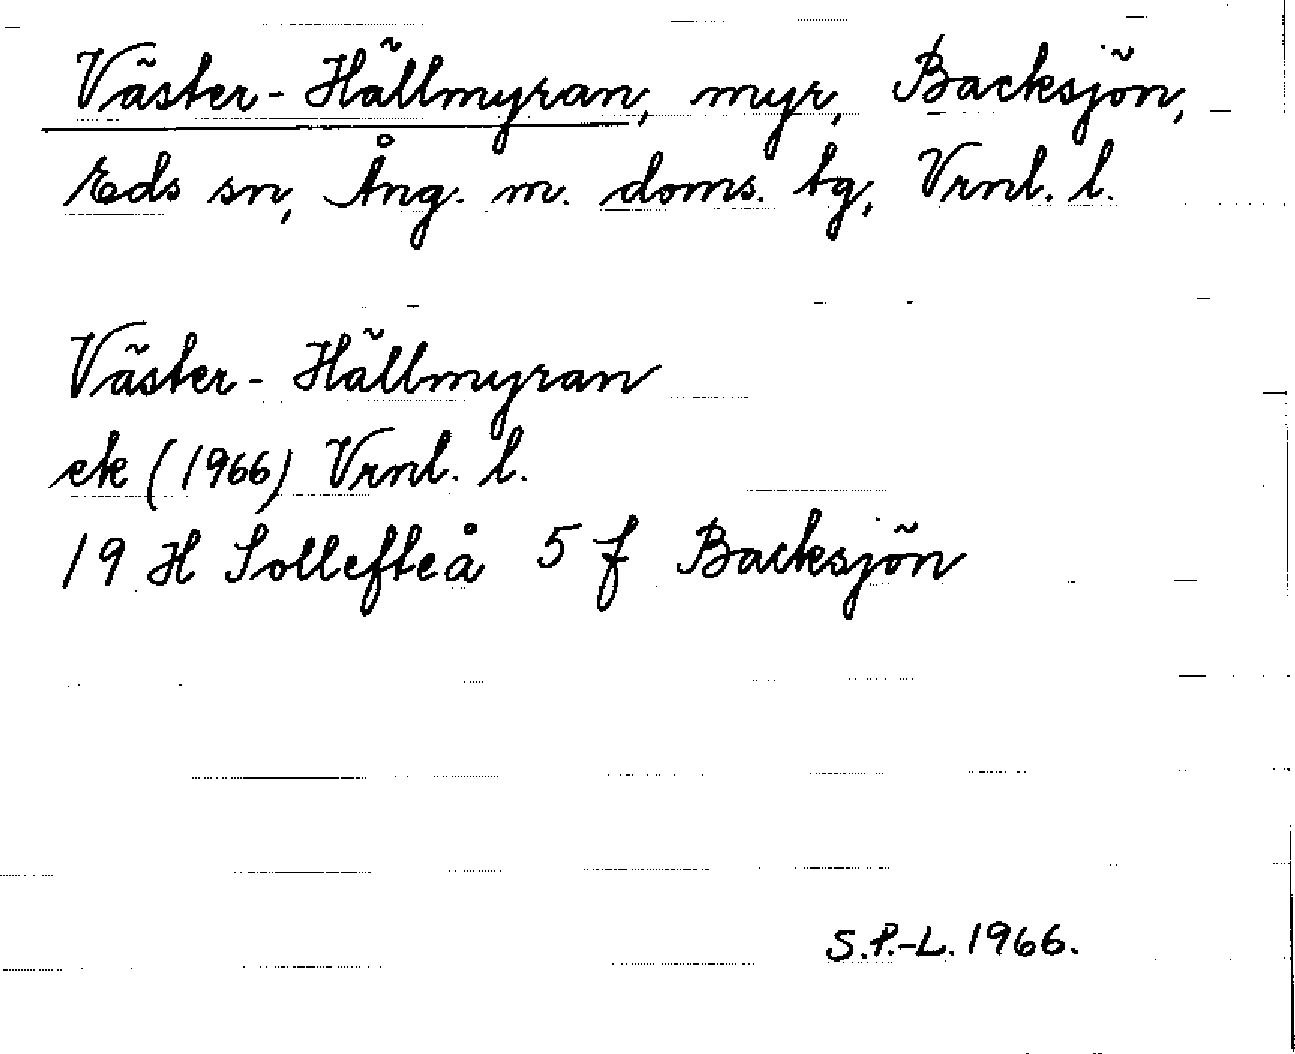 Väster-Hällmyran, myr, Backsjön,
Eds sn, Ång. m. doms. tg, Vrnl. l.
Väster-Hällmyran
ek (1966) Vrnl. l.
19 H Sollefteå 5 f Backsjön
S.P.-L. 1966.